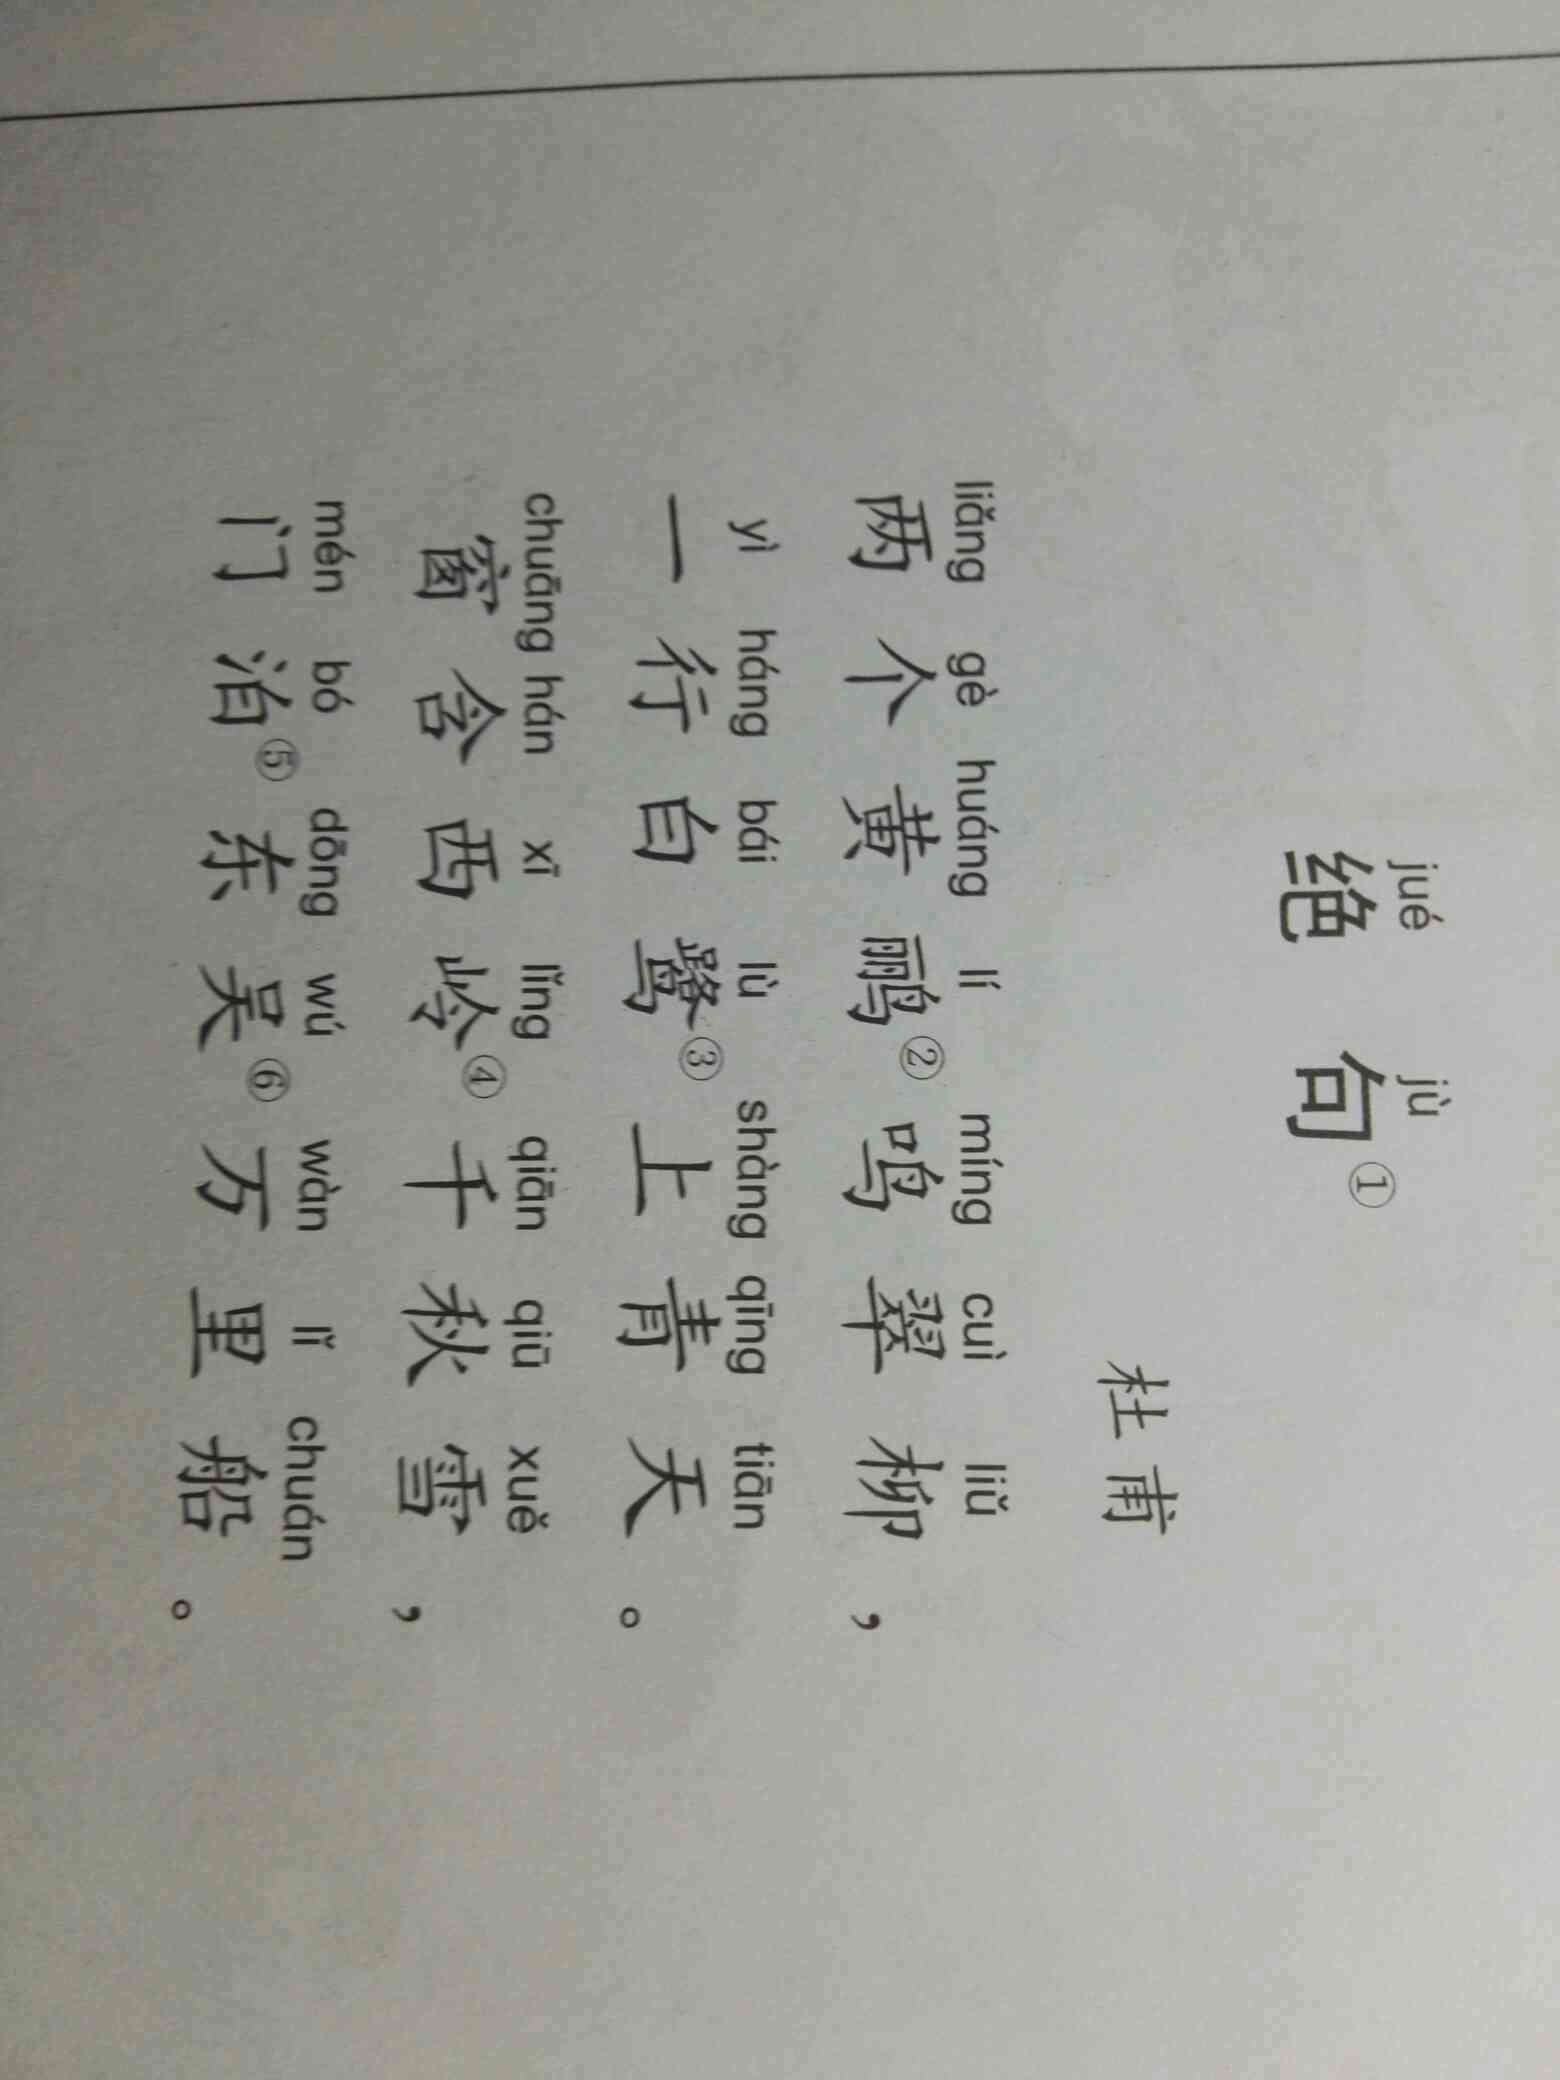 jué jù
绝句①
杜甫
liǎng gè huáng lí míng cuì liǔ
两个黄鹂②鸣翠柳，
yì háng bái lù shàng qīng tiān
一行白鹭③上青天。
chuāng hán xī lǐng qiān qiū xuě
窗含西岭④千秋雪，
mén bó dōng wú wàn lǐ chuán
门泊⑤东吴⑥万里船。